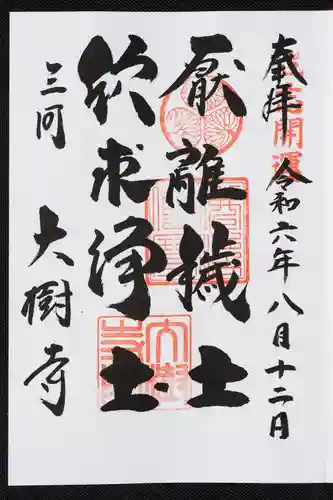 奉拝 令和六年八月十二日
厭離穢土
欣求浄土
三河 大樹寺